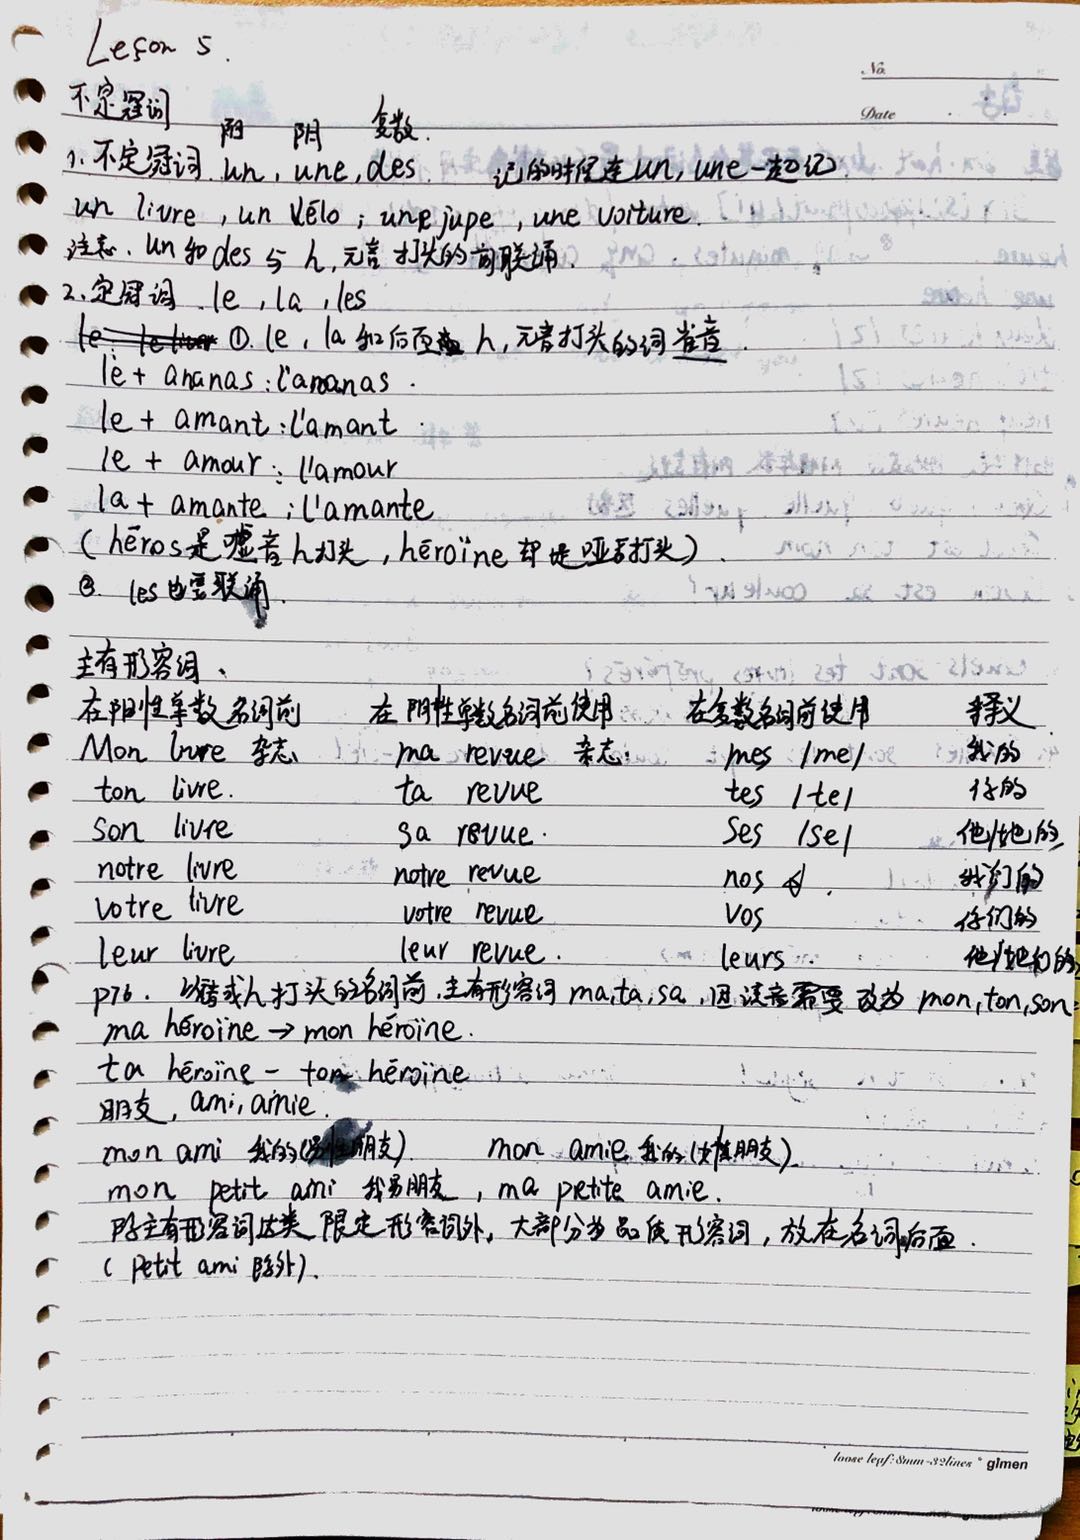 Leçon 5.
No.
Date
不定冠词
阳 阴 复数.
1. 不定冠词. un, une, des. 记的时候连un, une一起记.
un livre, un vélo; une jupe, une voiture.
注意. un和des与h,元音打头的词联诵.
2. 定冠词 le, la, les
①. le, la和后面 h,元音打头的词省音.
le + ananas: l'ananas.
le + amant: l'amant.
le + amour: l'amour
la + amante: l'amante
(héros是嘘音h打头, héroïne却是哑音打头).
②. les也要联诵.
主有形容词.
在阳性单数名词前 在阴性单数名词前使用 在复数名词前使用 释义
Mon livre 杂志 ma revue 杂志: mes /me/ 我的
ton livre. ta revue tes /te/ 你的
son livre sa revue. ses /se/ 他/她的
notre livre notre revue nos 我们的
votre livre votre revue vos 你们的
leur livre leur revue. leurs. 他/她们的
P76. 以元音或h打头的名词前,主有形容词ma, ta, sa,因读音需要改为mon, ton, son.
ma héroïne → mon héroïne.
ta héroïne - ton héroïne
朋友, ami, amie.
mon ami 我的(男性朋友) mon amie 我的(女性朋友)
mon petit ami 我男朋友, ma petite amie.
除主有形容词这类限定形容词外,大部分为品质形容词,放在名词后面.
(petit ami 除外).
loose leaf: 8mm-32lines glmen